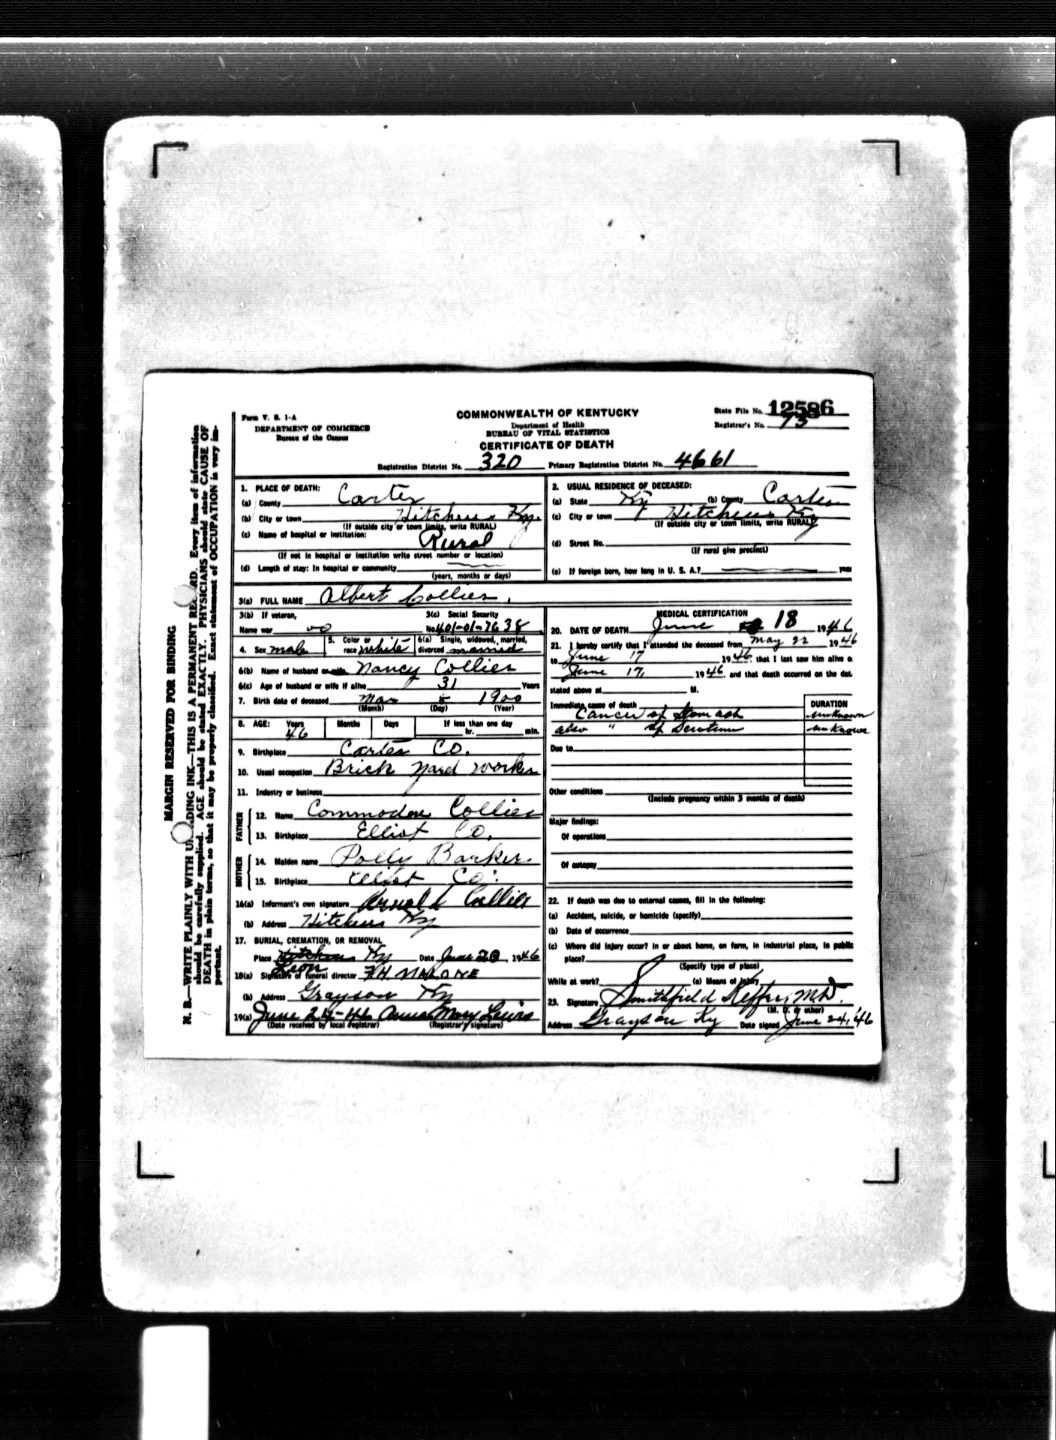 Form V. S. 1-A
DEPARTMENT OF COMMERCE
Bureau of the Census
COMMONWEALTH OF KENTUCKY
Department of Health
BUREAU OF VITAL STATISTICS
CERTIFICATE OF DEATH
State File No. 12586
Registrar's No. 73
Registration District No. 320 Primary Registration District No. 4661
MARGIN RESERVED FOR BINDING
N. B.—WRITE PLAINLY WITH UNFADING INK—THIS IS A PERMANENT RECORD. Every item of information
should be carefully supplied. AGE should be stated EXACTLY. PHYSICIANS should state CAUSE OF
DEATH in plain terms, so that it may be properly classified. Exact statement of OCCUPATION is very im-
portant.
1. PLACE OF DEATH:
(a) County Carter
(b) City or town Hitchins Ky.
(If outside city or town limits, write RURAL)
(c) Name of hospital or institution: Rural
(If not in hospital or institution write street number or location)
(d) Length of stay: In hospital or community
(years, months or days)
2. USUAL RESIDENCE OF DECEASED:
(a) State Ky (b) County Carter
(c) City or town Hitchins Ky
(If outside city or town limits, write RURAL)
(d) Street No.
(If rural give precinct)
(e) If foreign born, how long in U. S. A.? year
3(a) FULL NAME Albert Collier.
3(b) If veteran,
Name war no
3(c) Social Security
No. 401-01-7638
4. Sex male
5. Color or
race white
6(a) Single, widowed, married,
divorced married
6(b) Name of husband or wife Nancy Collier
6(c) Age of husband or wife if alive 31 Years
7. Birth date of deceased Mar 8 1900
(Month) (Day) (Year)
8. AGE: Years Months Days If less than one day
46 hr. min.
9. Birthplace Carter Co.
10. Usual occupation Brick yard worker
11. Industry or business
FATHER
12. Name Commodore Collier
13. Birthplace Elliot Co.
MOTHER
14. Maiden name Polly Barker.
15. Birthplace Elliot Co.
16(a) Informant's own signature Arnold Collier
(b) Address Hitchins Ky
17. BURIAL, CREMATION, OR REMOVAL
Place Hitchins Ky Date June 20, 1946
Leon
18(a) Signature of funeral director F.H. MALONE
(b) Address Grayson Ky
19(a) June 24-46 Anna Mary Lewis
(Date received by local registrar) (Registrar's signature)
MEDICAL CERTIFICATION
20. DATE OF DEATH June 18 1946
21. I hereby certify that I attended the deceased from May 22 1946
to June 17 1946, that I last saw him alive o
June 17, 1946, and that death occurred on the dat
stated above at M.
Immediate cause of death
Cancer of Stomach
also " of Scrotum
DURATION
unknown
unknown
Due to
Other conditions
(Include pregnancy within 3 months of death)
Major findings:
Of operations
Of autopsy
22. If death was due to external causes, fill in the following:
(a) Accident, suicide, or homicide (specify)
(b) Date of occurrence
(c) Where did injury occur? In or about home, on farm, in industrial place, in public
place?
(Specify type of place)
While at work? (e) Means of injury
23. Signature Smithfield Keffer, M.D.
(M. D. or other)
Address Grayson Ky Date signed June 24, 46